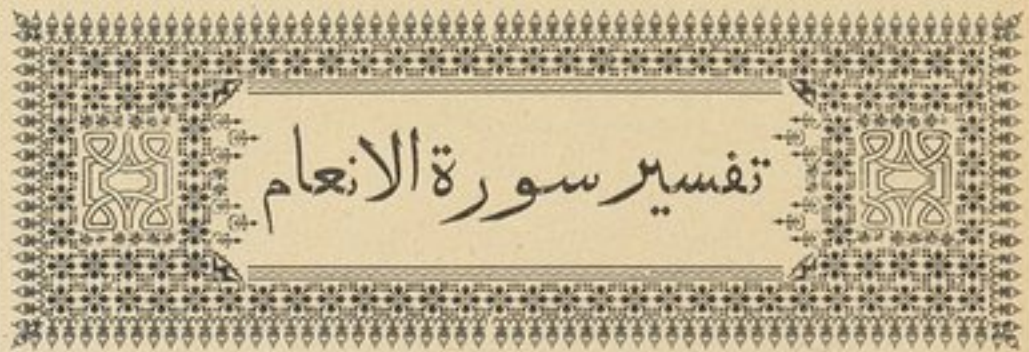 تفسير سورة الانعام